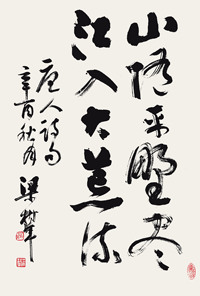 山随平野尽
江入大荒流
唐人诗句
辛酉秋月
梁